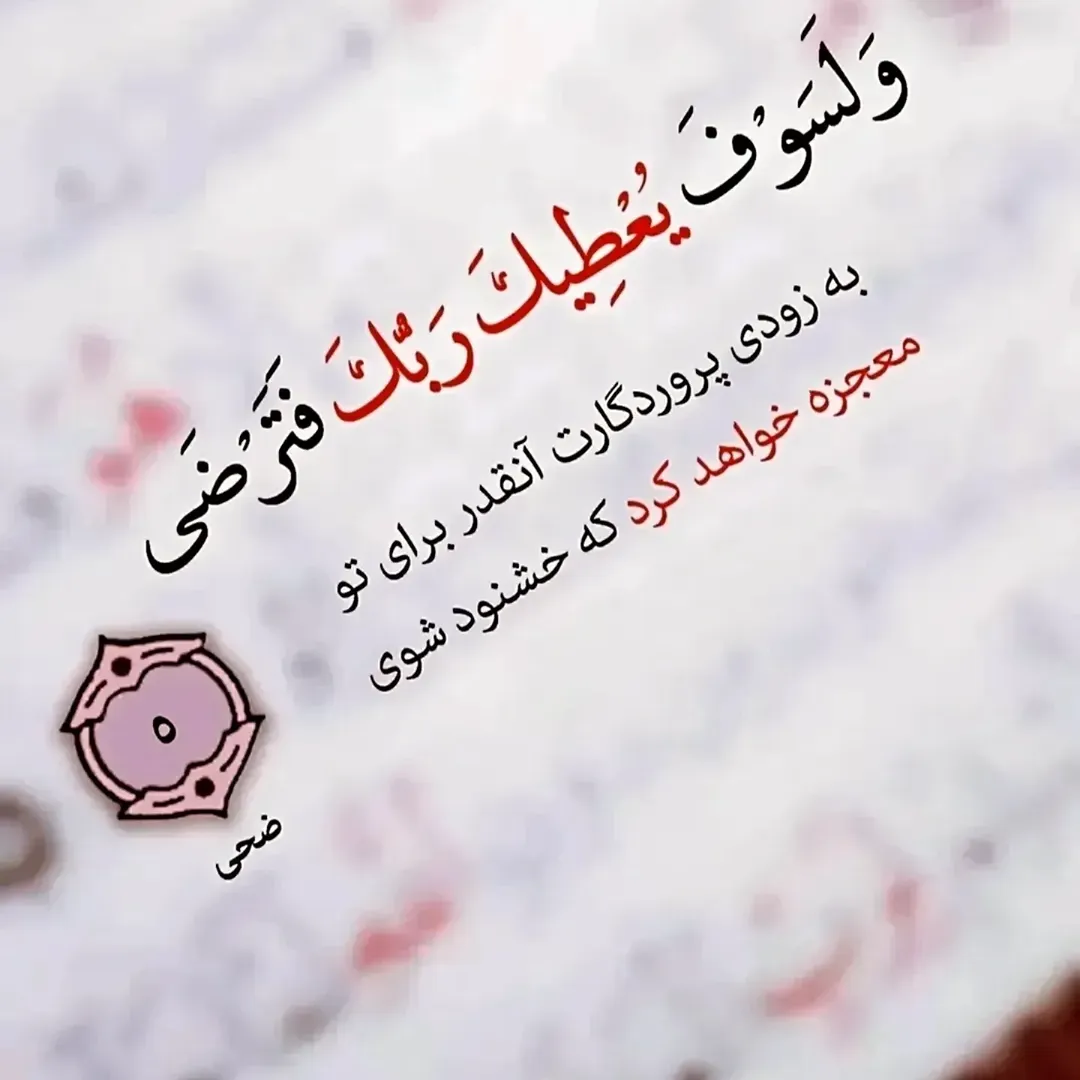 وَلَسَوْفَ يُعْطِيكَ رَبُّكَ فَتَرْضَى
به زودی پروردگارت آنقدر برای تو
معجزه خواهد کرد که خشنود شوی
۵
ضحی